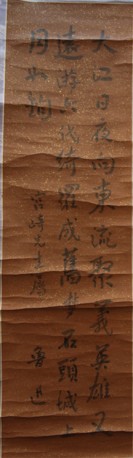 大江日夜向東流聚義英雄又
遠游六代綺羅成舊夢石頭城上
月如鉤
魯迅